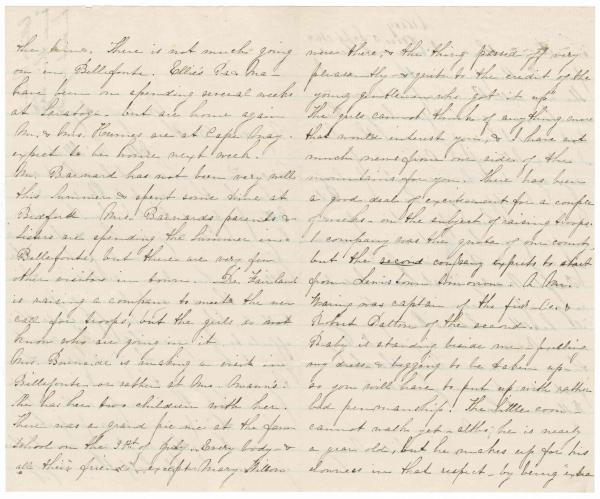 the time. There is not much going
on in Bellefonte. Ellie's Pa & Ma
have been on spending several weeks
at Saratoga. but are home again
Mr. & Mrs. are at Cape May.
expect to be home next week.
Mr. Barnard has not been very well
this Summer & spent some time at
Bedford. Mrs. Barnards parents &
sisters are spending the Summer in
Bellefonte, but there are very few
other visitors in town. Dr.
is raising a company to meet the new
call for troops, but the girls do not
know who are going in it
Mrs. Burnside is making a visit in
Bellefonte or rather at Mrs.
she has her two children with her.
There was a grand pic nic at the farm
School on the of July. Every body &
all their friends except Mary
were there, & the thing passed off very
pleasantly, & quite to the credit of the
young gentlemen who got it up
The girls cannot think of any thing more
that would interest you, & I have not
much news from our side of the
mountains for you. There has been
a good deal of excitement for a couple
of weeks on the subject of raising troops.
1 company was the quota of our county,
but the second company expects to start
from Lewistown tomorrow. A Mr.
Waring was captain of the first Co. &
Robert of the second.
Baby is standing beside me pulling
my dress & begging to be taken up
so you will have to put up with rather
bad penmanship. The little coon
cannot walk yet altho; he is nearly
a year old, but he makes up for his
slowness in that respect by being extra